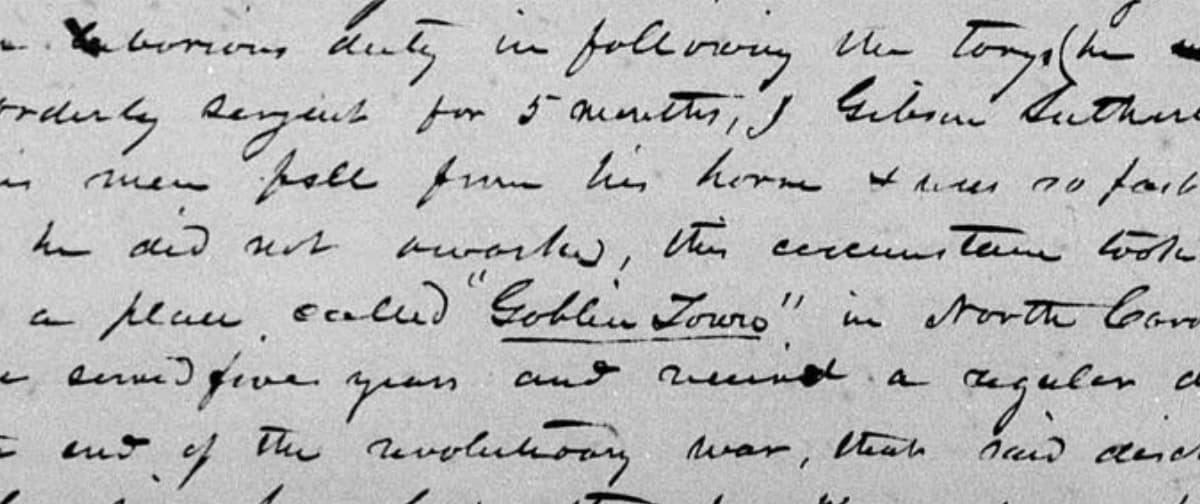 laborious duty in following the torys (he
orderly sergeant for 5 months, I Gibson Suther
men fell from his horse & was so fast
he did not awake, this circumstance took
a place called "Goblin Town" in North Caro
served five years and received a regular d
end of the revolutionary war, that said disc